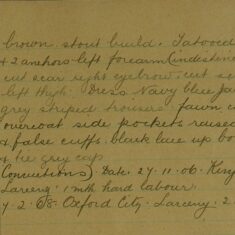 brown. stout build. Tatooed
& 2 anchors left forearm (indistinct
cut scar right eyebrow. cut sc
left thigh. Dress Navy blue jac
grey striped trousers. fawn c
overcoat side pockets raised
& false cuffs. black lace up bo
& tie grey cap
Convictions) Date. 27. 11. 06. King
Larceny 1 mth hard labour
2. 08. Oxford City. Larceny. 2